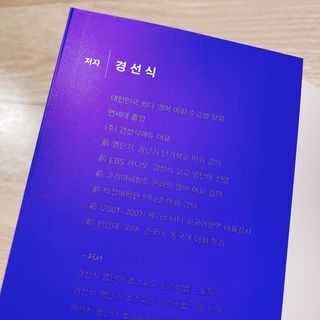 저자 경선식
대한민국 최다 영어 어휘 수강생 보유
연세대 졸업
(주) 경선식에듀 대표
前 영단기, 공단기 단기학교 어휘 강의
前 EBS 라디오 경선식 고교 영단어 진행
前 코리아헤럴드 온라인 영어 어휘 강의
前 박정어학원 인터넷 어휘 강의
前 (2001~2007) 메가스터디 외국어영역 대표강사
前 한양대, 외대, 건국대, 동국대 어휘 특강
· 저서
경선식 영단어 초스피드 암기비법 - 토익
경선식 영단어 초스피드 암기비법 -